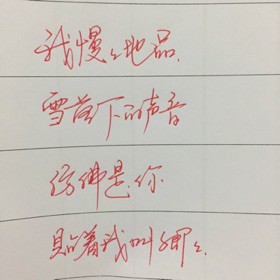 我慢慢地品.
雪落下的声音
仿佛是你
贴着我叫卿卿.